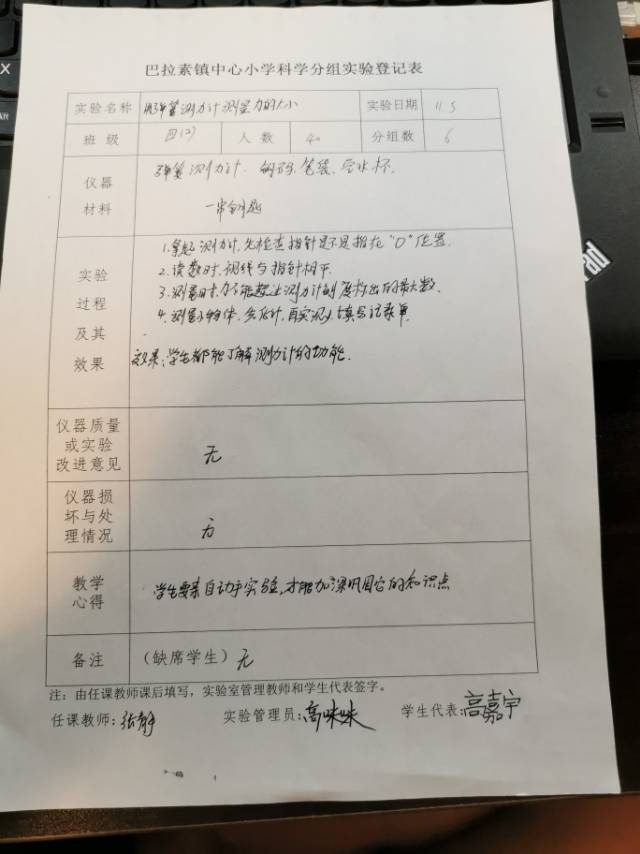 巴拉素镇中心小学科学分组实验登记表
实验名称 用弹簧测力计测量力的大小 实验日期 11.5
班级 四(2) 人数 40 分组数 6
仪器材料 弹簧测力计、钩码、笔袋、空水杯、
一串钥匙
实验过程及其效果 1.拿起测力计,先检查指针是不是指在“0”位置.
2.读数时,视线与指针相平.
3.测量时,不能超过测力计刻度标出的最大数.
4.测量小物体,先估计,再实测,填写记录单.
效果:学生都能了解测力计的功能.
仪器质量或实验改进意见 无
仪器损坏与处理情况 无
教学心得 学生要亲自动手实验,才能加深巩固它的知识点
备注 (缺席学生) 无
注:由任课教师课后填写,实验室管理教师和学生代表签字。
任课教师:张静 实验管理员:高咏咏 学生代表:高嘉宇